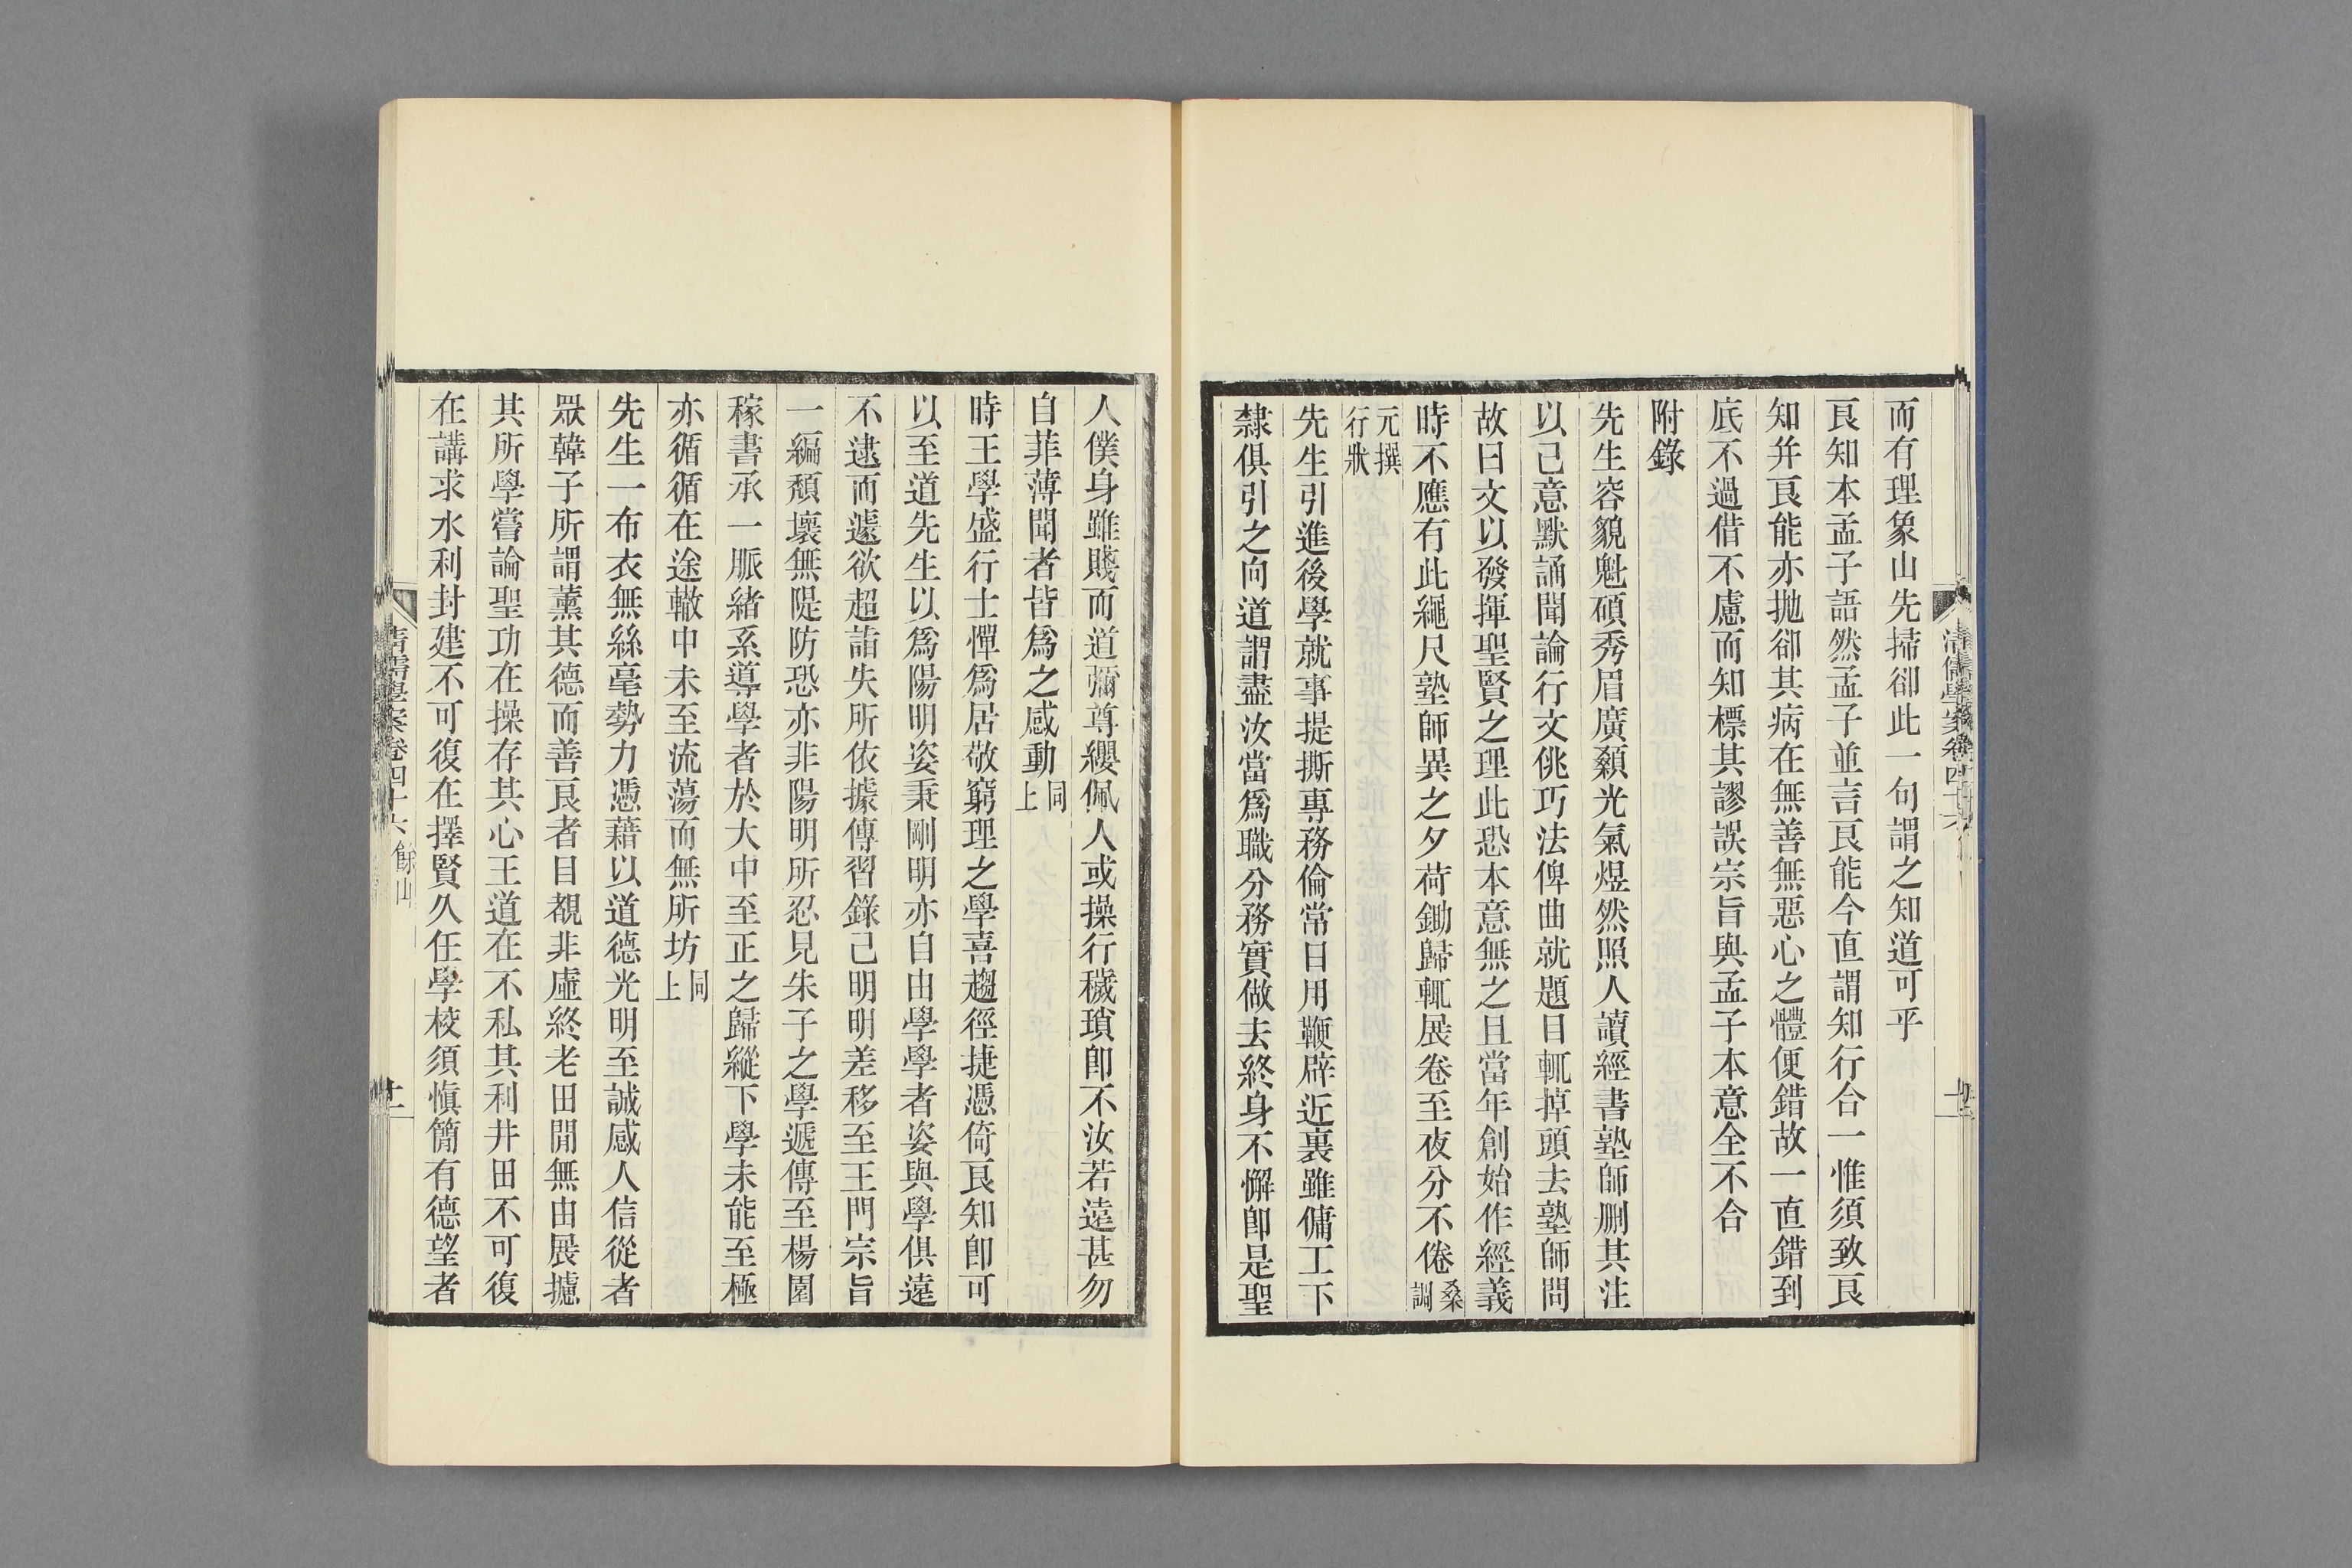 而有理象山先掃卻此一句謂之知道可乎
良知本孟子語然孟子並言良能今直謂知行合一惟須致良
知幷良能亦拋卻其病在無善無惡心之體便錯故一直錯到
底不過借不慮而知標其謬誤宗旨與孟子本意全不合
附錄
先生容貌魁碩秀眉廣顙光氣煜然照人讀經書塾師刪其注
以己意默誦聞論行文佻巧法俾曲就題目輒掉頭去塾師問
故曰文以發揮聖賢之理此恐本意無之且當年創始作經義
時不應有此繩尺塾師異之夕荷鋤歸輒展卷至夜分不倦桑調
元撰行狀
先生引進後學就事提撕專務倫常日用鞭辟近裏雖傭工下
隸俱引之向道謂盡汝當爲職分務實做去終身不懈卽是聖
人僕身雖賤而道彌尊纓佩人或操行穢瑣卽不汝若遠甚勿
自菲薄聞者皆爲之感動同上
時王學盛行士憚爲居敬窮理之學喜趨徑捷憑倚良知卽可
以至道先生以爲陽明姿秉剛明亦自由學學者姿與學俱遠
不逮而遽欲超詣失所依據傳習錄己明明差移至王門宗旨
一編頹壞無隄防恐亦非陽明所忍見朱子之學遞傳至楊園
稼書承一脈緒系導學者於大中至正之歸縱下學未能至極
亦循循在途轍中未至流蕩而無所坊同上
先生一布衣無絲毫勢力憑藉以道德光明至誠感人信從者
眾韓子所謂薰其德而善良者目覩非虛終老田閒無由展攄
其所學嘗論聖功在操存其心王道在不私其利井田不可復
在講求水利封建不可復在擇賢久任學校須愼簡有德望者
清儒學案卷四十六 餘山